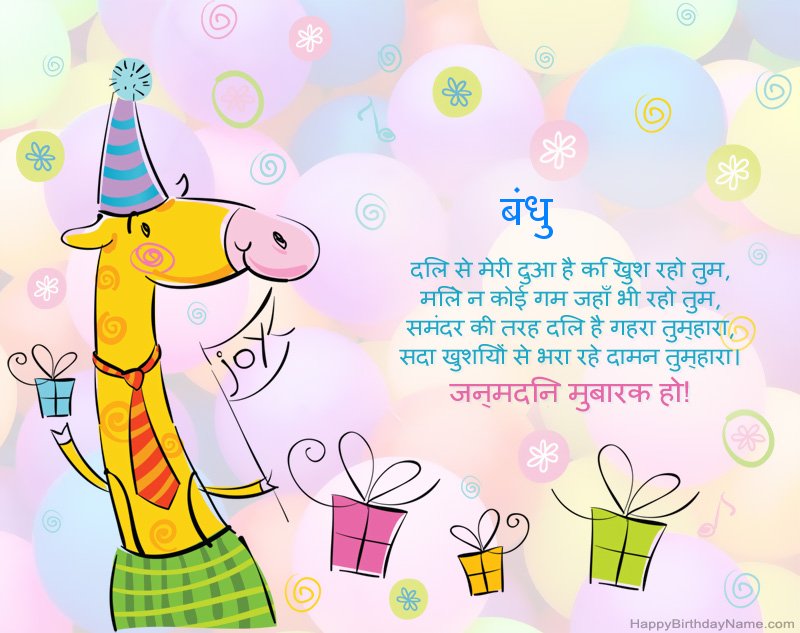 बंधु
दलि से मेरी दुआ है कि खुश रहो तुम,
मलिे न कोई गम जहाँ भी रहो तुम,
समंदर की तरह दलि है गहरा तुम्हारा,
सदा खुशयिों से भरा रहे दामन तुम्हारा।
जन्मदनि मुबारक हो!
joy
HappyBirthdayName.com